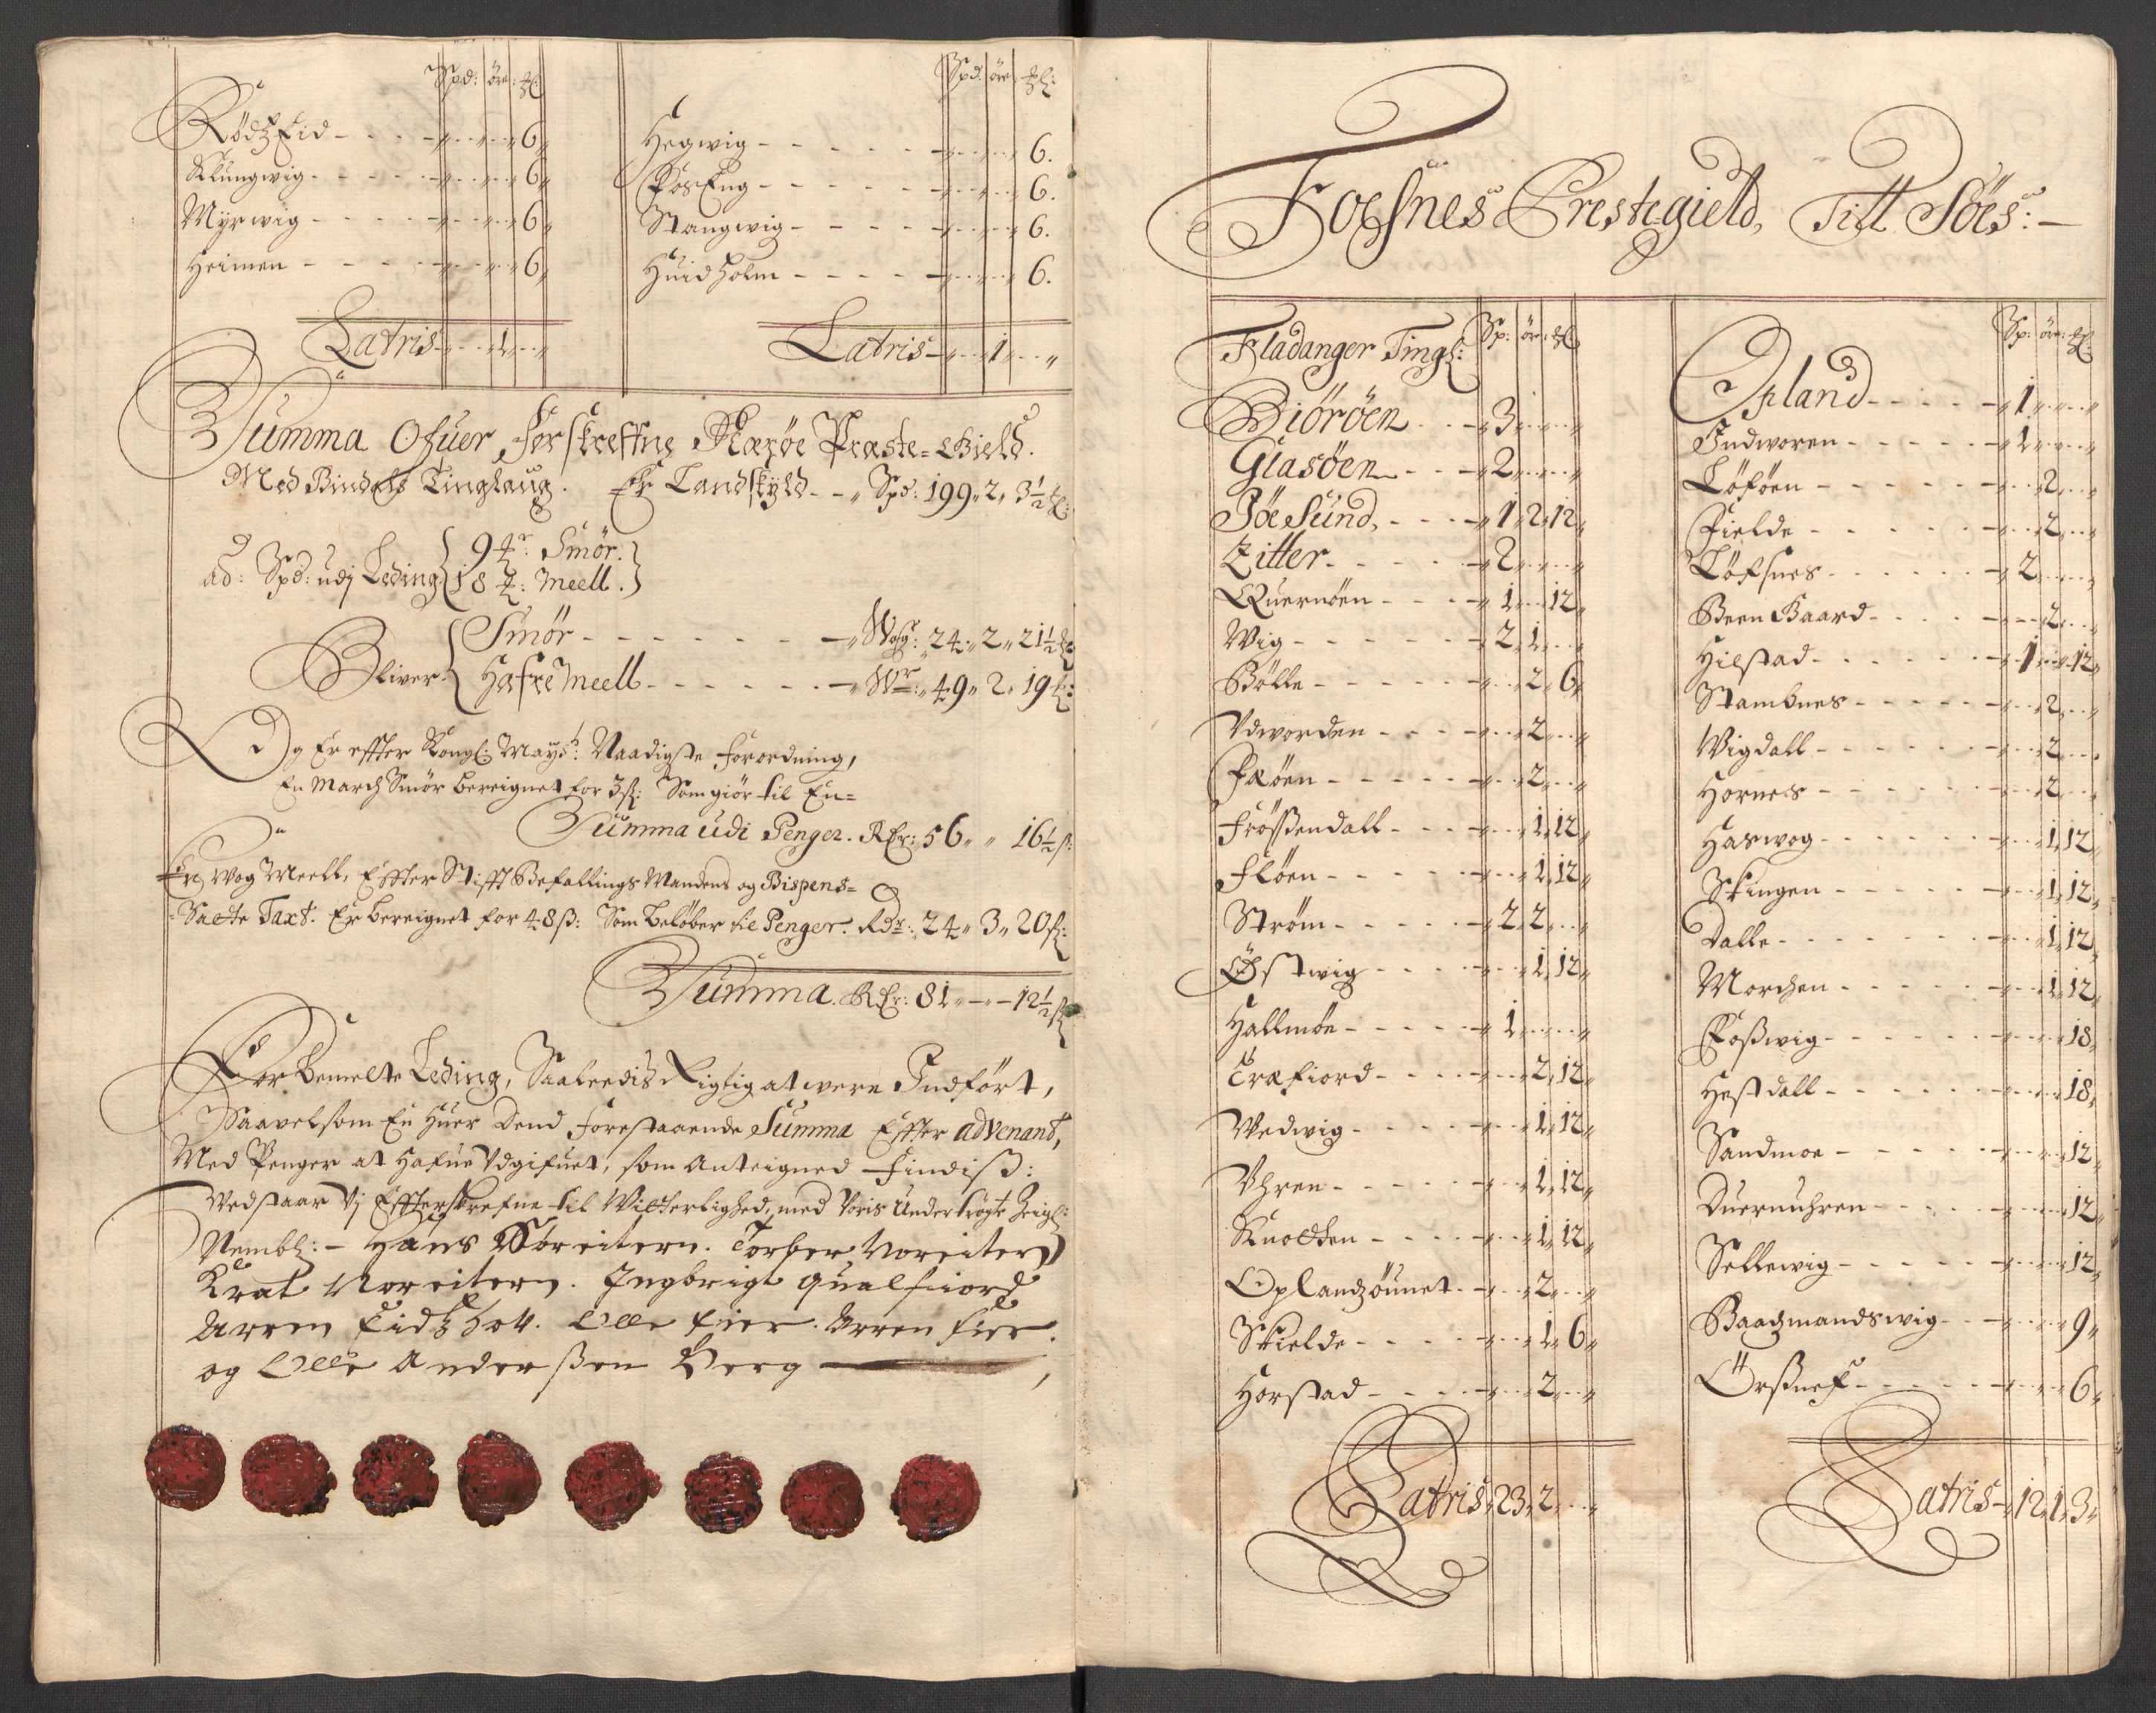 Spd: öre: ℔
RødzEid - - - - „ „ 6„
Klungwig - - - - „ „ 6„
Myrwig - - - - „ „ 6„
Heimen - - - - „ „ 6„
Latris - „ 1 „
Spd. öre ℔:
Hegwig - - - - - „ „ 6.
PosEng - - - - - „ „ 6.
Stangwig - - - - „ „ 6.
Huidholm - - - - „ „ 6.
Latris - „ 1 „
Summa Ofuer forskreffne Nærøe Præste-Gield.
Med Bindals Tinglaug. Er Landskyld - „ Spd: 199„ 2„ 3½ ℔:
ad: Spd: udj Leding { 9 ℔r: Smör.
18 ℔: Meell. }
Bliver { Smör - - - - - - „ Wog: 24„ 2„ 21½ ℔:
Hafre Meell - - - - - - „ Wr: „ 49„ 2„ 19 ℔:
Og Er effter Kongl: Mayst: Naadigste forordning,
En March Smör bereignet for 3 ß: Som giör til En=
Summa udi Penger. Rdr: 56„ „ 16½ ß:
En Wog Meell, Effter Stifft Befallings Mandens og Bispens=
Satte Taxt. Er bereignet for 48 ß: Som beløber til Penger. Rdr: 24„ 3„ 20 ß:
Summa. Rdr: 81„ - „ - 12½ ß
For bemelte Leding, Saaledis Rigtig at were Indført,
Saavelsom En huer Dend forestaaende Summa Effter advenant,
Med Penger at hafue Udgifuet, som Anteigned findiß:
Vedstaar Vj Effterskrefne til Witterlighed, med Voris Undertrögte Zeigl:
Nembl: - Hans Noreitern. Torber Noreitern
Krat Noreitern. Ingbrigt Qualfiord
Arren Eidshou. Olle Eier. Arren Fier.
og Olle Anderßen Berg
Foesnes Prestegield, Till Söes: -
Fladanger Tingl: Sp: öre: ℔
Biöröen - - „ 3 „ „
Glasöen - - „ 2 „ „
Jöe Sund, - - - „ 1„ 2„ 12„
Zitter - - - - „ 2 „ „
Quernöen - - - „ 1 „ 12„
Wig - - - - - „ 2„ 1 „
Bölle - - - - - „ „ 2„ 6„
Vdworden - - - „ „ 2 „
Fæöen - - - - - „ „ 2 „
Frößendall - - - „ „ 1„ 12„
Flöen - - - - - „ „ 1„ 12„
Ström - - - - - „ 2„ 2 „
Östwig - - - - „ „ 1„ 12„
Hallmöe - - - - „ 1 „ „
Træfiord - - - - „ „ 2„ 12„
Wedwig - - - - „ „ 1„ 12„
Vhren - - - - - „ „ 1„ 12„
Knotten - - - - „ „ 1„ 12„
Oplandzöunet - - „ „ 2 „
Skielde - - - - „ „ 1„ 6„
Horstad - - - - „ „ 2 „
Latris „ 23„ 2 „
Sp: öre: ℔
Opland - - - - „ 1 „ „
Indworen - - - - - „ 1 „ „
Löföen - - - - - „ „ 2 „
Fielde - - - - - „ „ 2 „
Löfsnes - - - - - „ 2 „ „
Been Gaard - - - - „ „ 2 „
Hilstad - - - - - „ 1 „ 12„
Stambnes - - - - - „ „ 2 „
Wigdall - - - - - „ „ 2 „
Hornes - - - - - „ „ 2 „
Haswog - - - - - „ „ 1„ 12„
Skingen - - - - - „ „ 1„ 12„
Dalle - - - - - - „ „ 1„ 12„
Morchen - - - - - „ „ 1„ 12„
Foßwig - - - - - „ „ „ 18„
Hestdall - - - - - „ „ „ 18„
Sandmoe - - - - - „ „ „ 12„
Duernuhren - - - - „ „ „ 12„
Sellewig - - - - - „ „ „ 12„
Baadzmandswig - - „ „ „ 9„
Örßnes - - - - - „ „ „ 6„
Latris - „ 12„ 1„ 3„